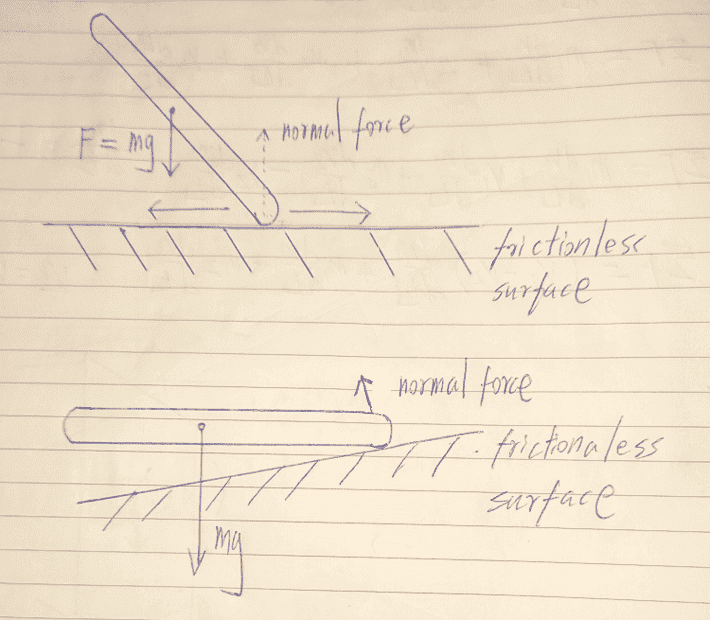 normal force
F = mg
frictionless
surface
normal force
frictionaless
surface
mg